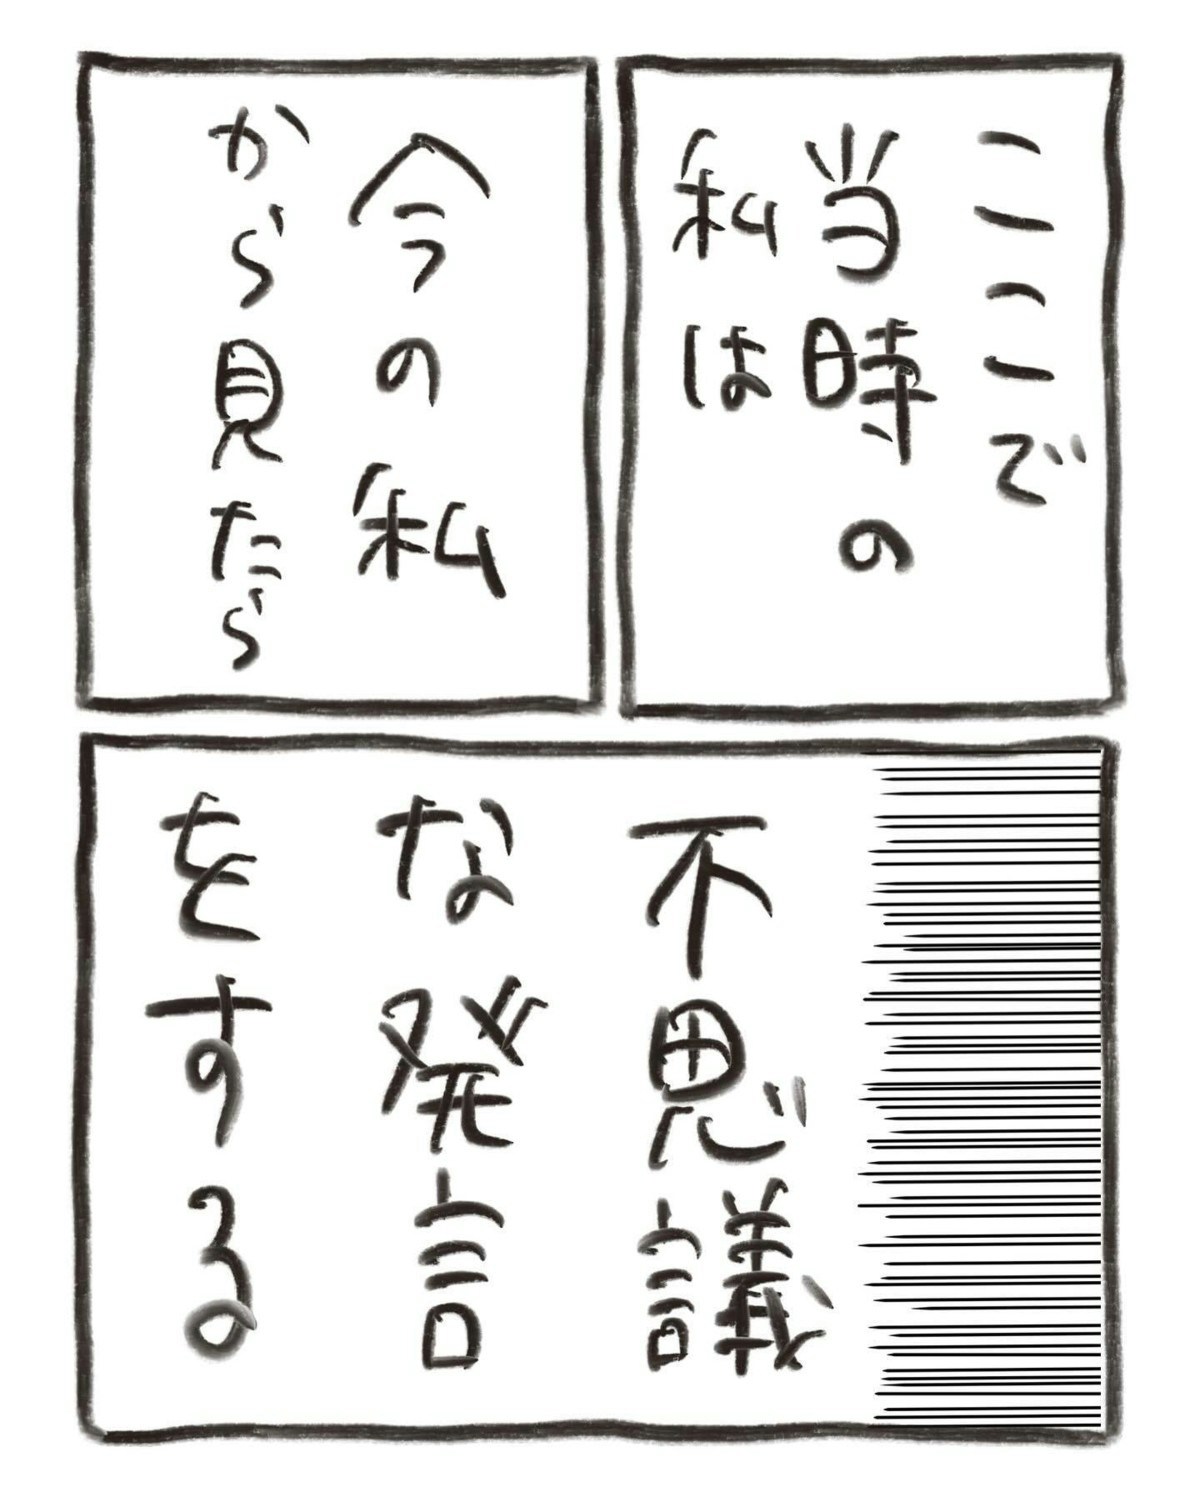 ここで
当時の
私は
今の私
から見たら
不思議
な発言
をする